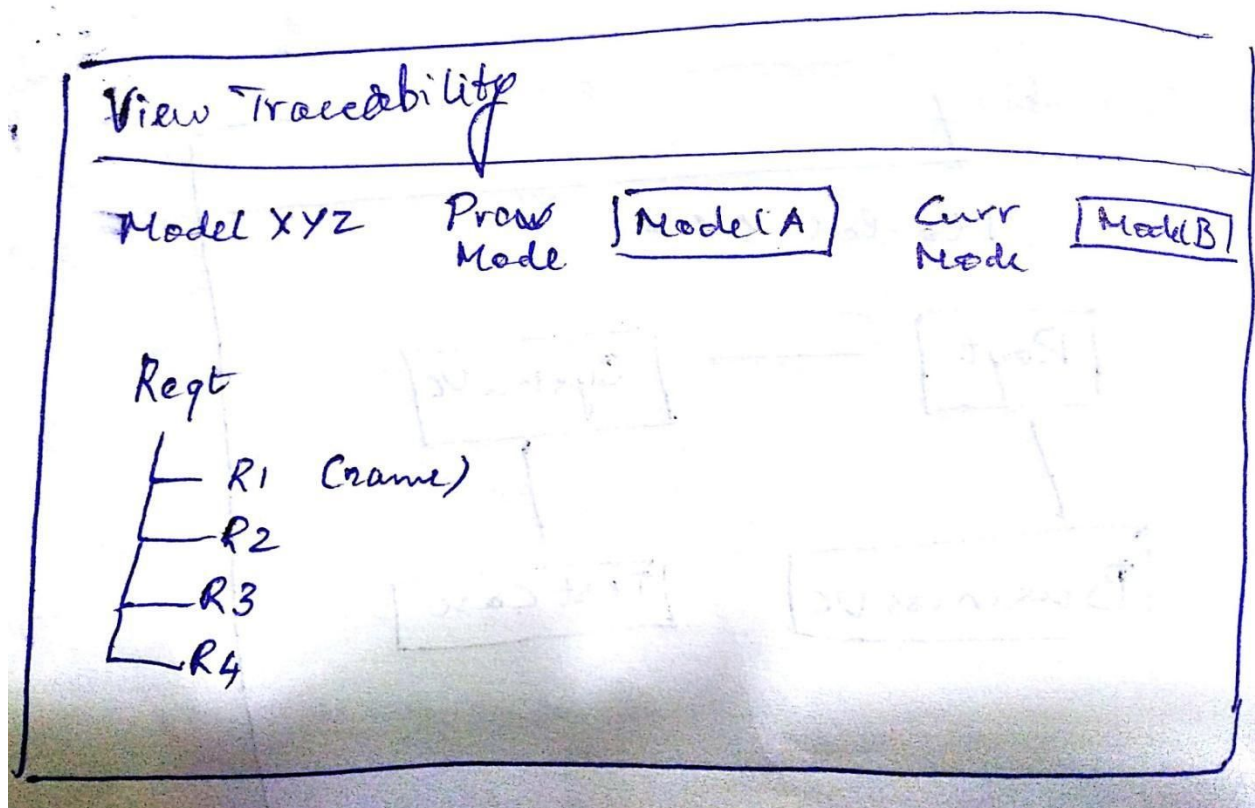 View Traceability
Model XYZ Prev Mode Model A Curr Mode Model B
Reqt
R1 (name)
R2
R3
R4